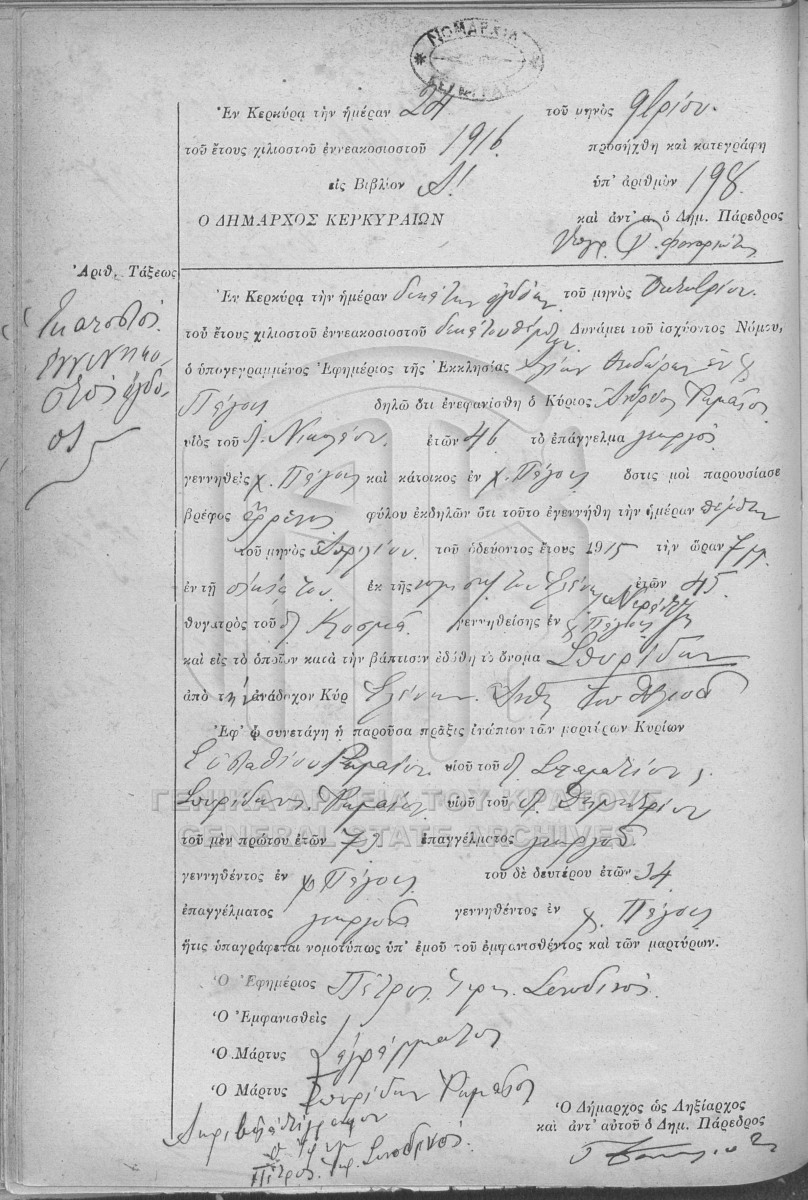 ΝΟΜΑΡΧΙΑ
ΚΕΡΚΥΡΑΣ
Ἐν Κερκύρᾳ τὴν ἡμέραν 24 τοῦ μηνὸς 9βρίου.
τοῦ ἔτους χιλιοστοῦ ἐννεακοσιοστοῦ 1916 προσήχθη καὶ κατεγράφη
εἰς Βιβλίον Δ! ὑπ' ἀριθμὸν 198.
Ὁ ΔΗΜΑΡΧΟΣ ΚΕΡΚΥΡΑΙΩΝ καὶ ἀντ' α. ὁ Δημ. Πάρεδρος
Ἀριθ. Τάξεως
Ἑκατοστὸς
ἐννενηκο
στὸς ὄγδο
ος
Ἐν Κερκύρᾳ τὴν ἡμέραν δεκάτην ὀγδόην τοῦ μηνὸς Ὀκτωβρίου.
τοῦ ἔτους χιλιοστοῦ ἐννεακοσιοστοῦ δεκάτου πέμπτου Δυνάμει τοῦ ἰσχύοντος Νόμου,
ὁ ὑπογεγραμμένος Ἐφημέριος τῆς Ἐκκλησίας Ἁγίων Θεοδώρων ἐν χ.
δηλῶ ὅτι ἐνεφανίσθη ὁ Κύριος
υἱὸς τοῦ π. Νικολάου. ἐτῶν 46 τὸ ἐπάγγελμα γεωργὸς
γεννηθεὶς χ. καὶ κάτοικος ἐν χ. ὅστις μοι παρουσίασε
βρέφος ἄρρενος φύλου ἐκδηλῶν ὅτι τοῦτο ἐγεννήθη τὴν ἡμέραν πέμπτην
τοῦ μηνὸς Ἀπριλίου. τοῦ ὁδεύοντος ἔτους 1915 τὴν ὥραν 7
ἐν τῇ οἰκίᾳ του ἐκ τῆς συζύγου του Ἑλένης ἐτῶν 45
θυγατρὸς τοῦ π. Κοσμᾶ γεννηθείσης ἐν χ.
καὶ εἰς τὸ ὁποῖον κατὰ τὴν βάπτισιν ἐδόθη τὸ ὄνομα Σπυρίδων
ἀπὸ τὴν ἀνάδοχον Κύρ Ἑλένην
Ἐφ' ᾧ συνετάγη ἡ παροῦσα πρᾶξις ἐνώπιον τῶν μαρτύρων Κυρίων
Εὐσταθίου υἱοῦ τοῦ π. Σταματίου,
Σπυρίδωνος υἱοῦ τοῦ π. Δημητρίου
ΓΕΝΙΚΑ ΑΡΧΕΙΑ ΤΟΥ ΚΡΑΤΟΥΣ
GENERAL STATE ARCHIVES
τοῦ μὲν πρώτου ἐτῶν ἐπαγγέλματος γεωργοῦ
γεννηθέντος ἐν χ. τοῦ δὲ δευτέρου ἐτῶν 34
ἐπαγγέλματος γεωργοῦ γεννηθέντος ἐν χ.
ἥτις ὑπαγράφεται νομοτύπως ὑπ' ἐμοῦ τοῦ ἐμφανισθέντος καὶ τῶν μαρτύρων.
Ὁ Ἐφημέριος Πέτρος Ἱερ. Σκοδινός.
Ὁ Ἐμφανισθεὶς
Ὁ Μάρτυς ἀγράμματος
Ὁ Μάρτυς Σπυρίδων
Ἀκριβὲς ἀντίγραφον
Πέτρος Ἱερ.
Ὁ Δήμαρχος ὡς Ληξίαρχος
καὶ ἀντ' αὐτοῦ ὁ Δημ. Πάρεδρος